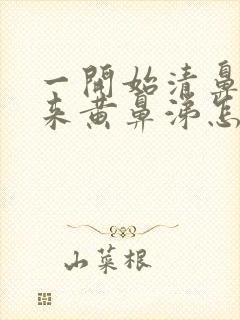 一開始清鼻
来黄鼻涕怎
山菜根